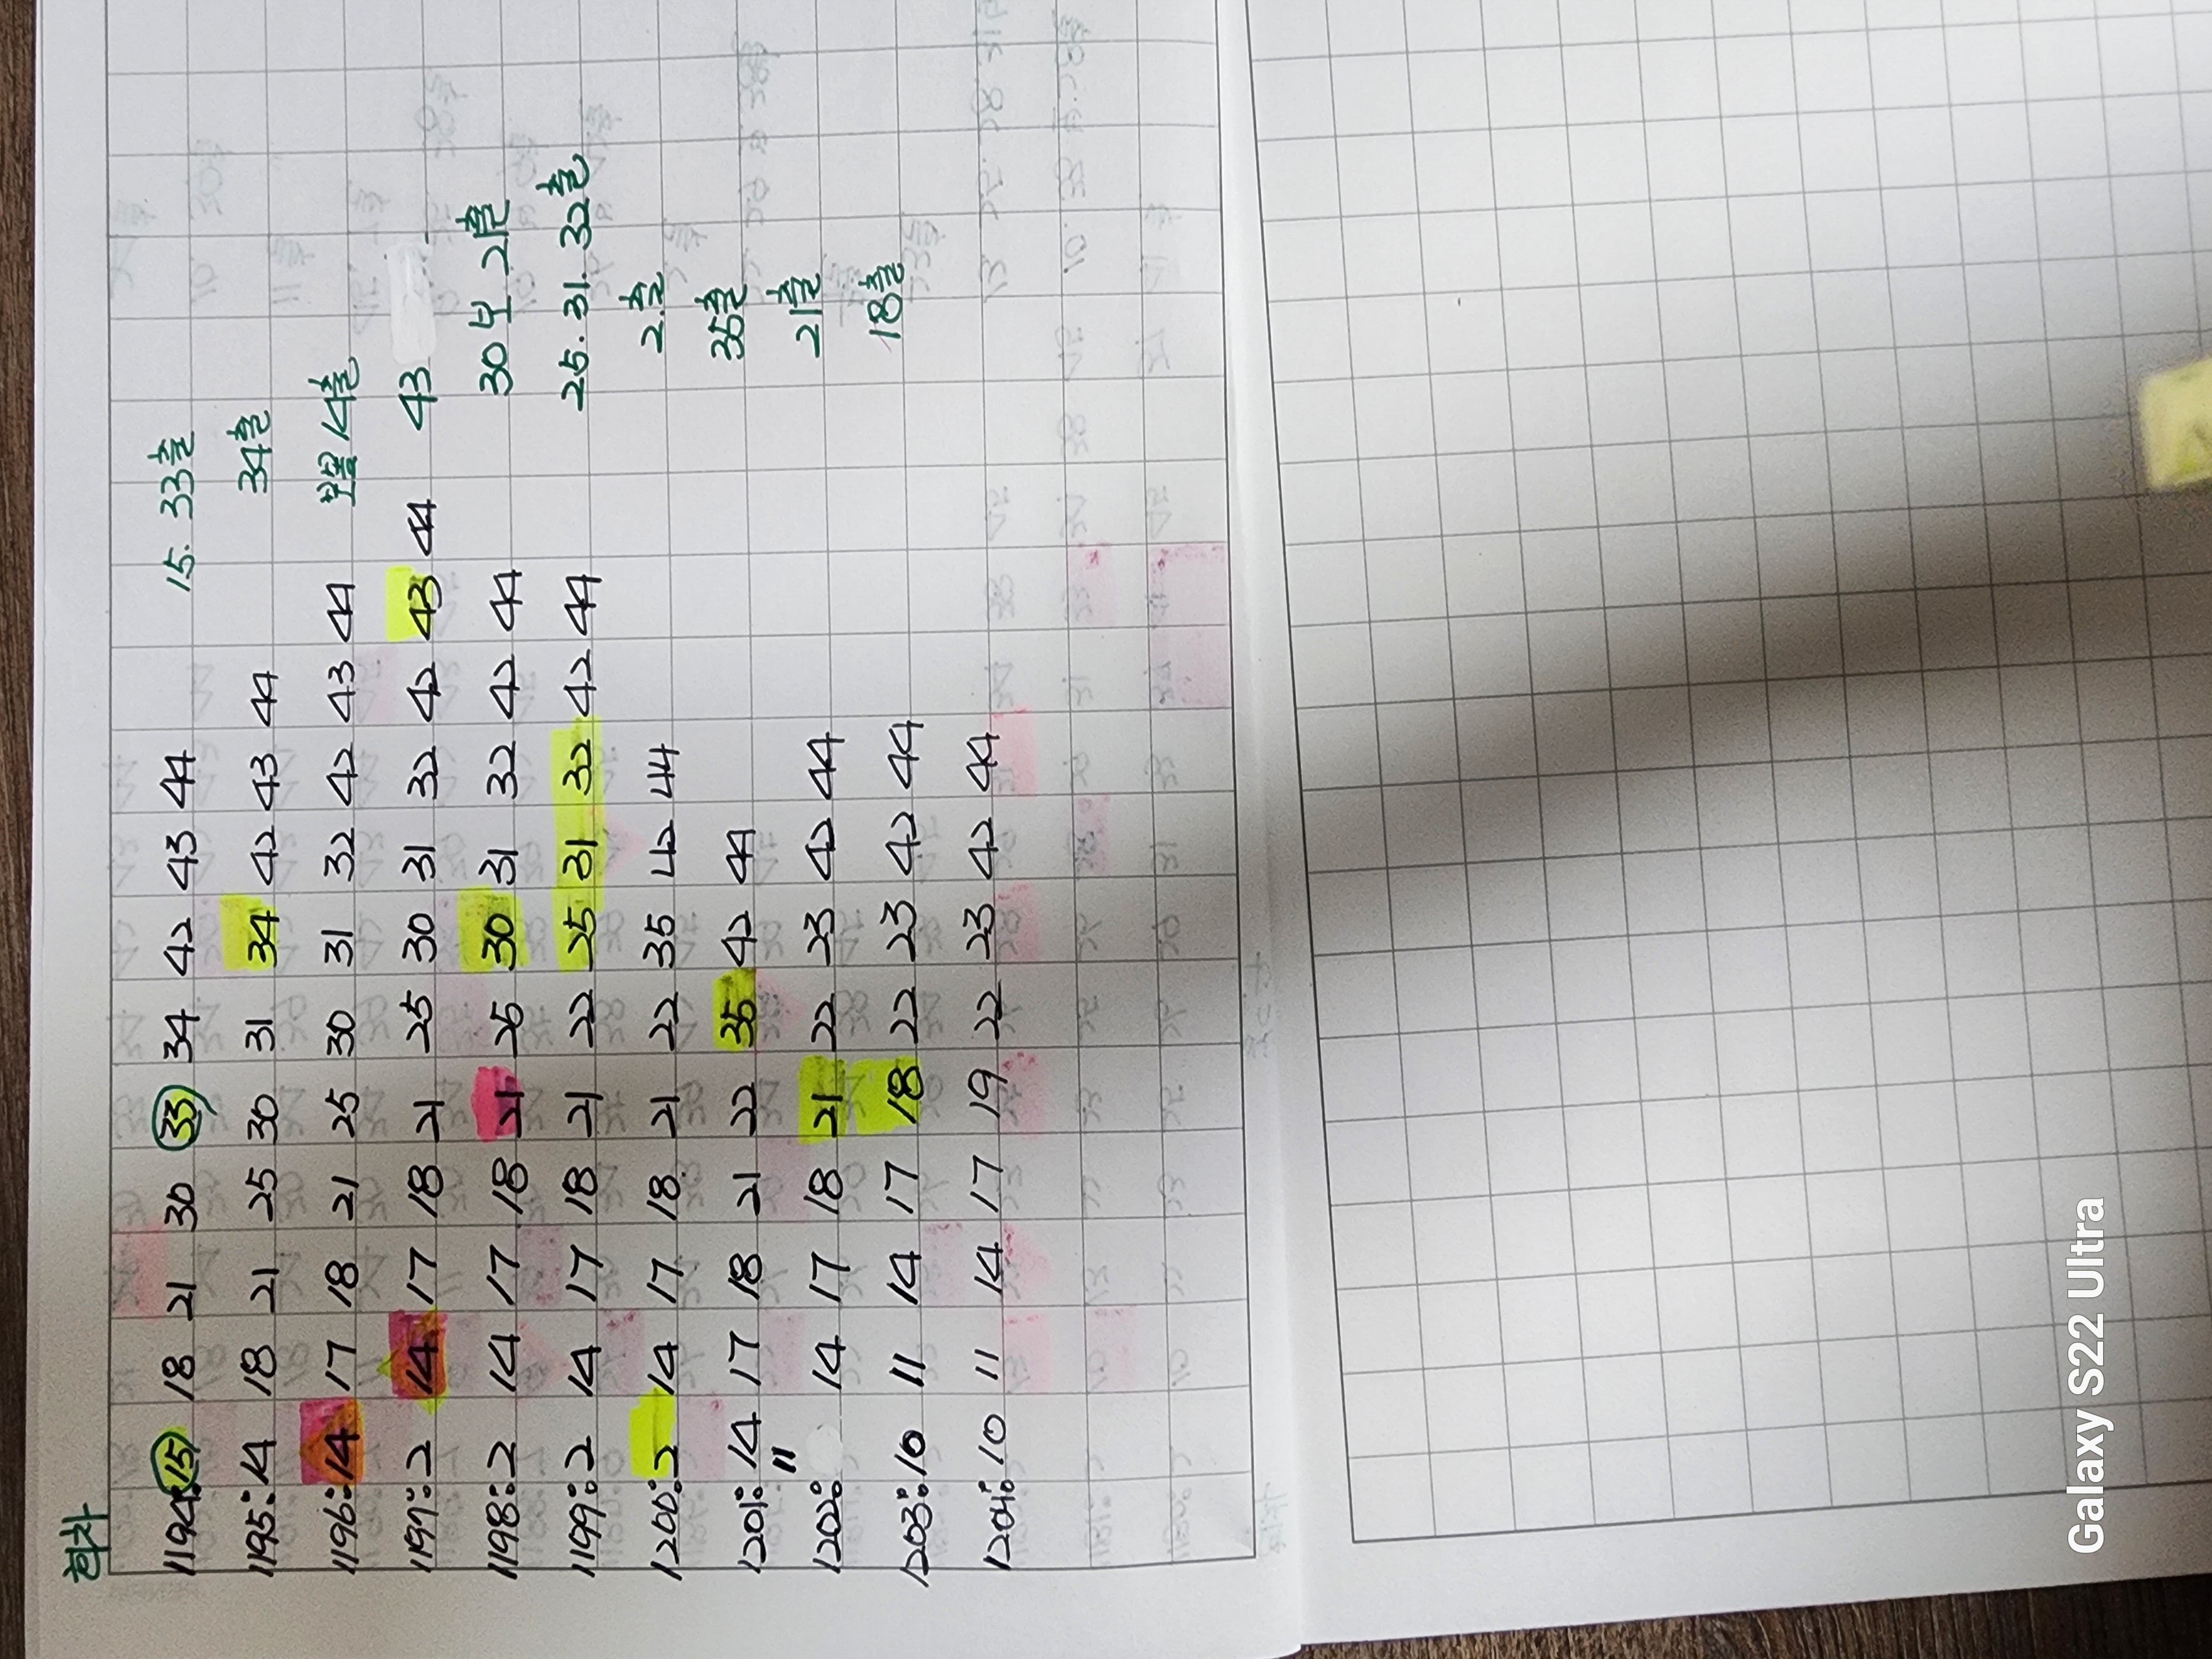 회차
1194: 15 18 21 30 33 34 42 43 44 15. 33출
1195: 14 18 21 25 30 31 34 42 43 44 34출
1196: 14 17 18 21 25 30 31 32 42 43 44 보볼 14출
1197: 2 14 17 18 21 25 30 31 32 42 43 44 43
1198: 2 14 17 18 21 25 30 31 32 42 44 30 보 21출
1199: 2 14 17 18 21 22 25 31 32 42 44 25. 31. 32출
1200: 2 14 17 18. 21 22 35 42 44 2.출
1201: 14 17 18 21 22 35 42 44 35출
1202: 11 14 17 18 21 22 23 42 44 21출
1203: 10 11 14 17 18 22 23 42 44 18출
1204: 10 11 14 17 19 22 23 42 44
Galaxy S22 Ultra